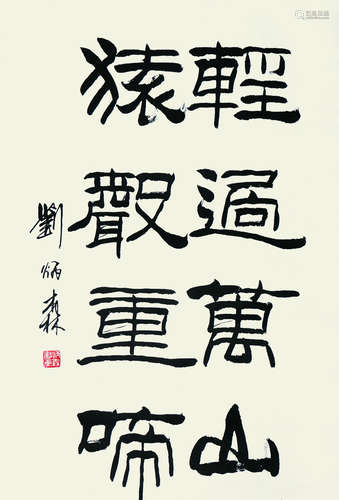 輕過萬山
猿聲重啼
劉炳森